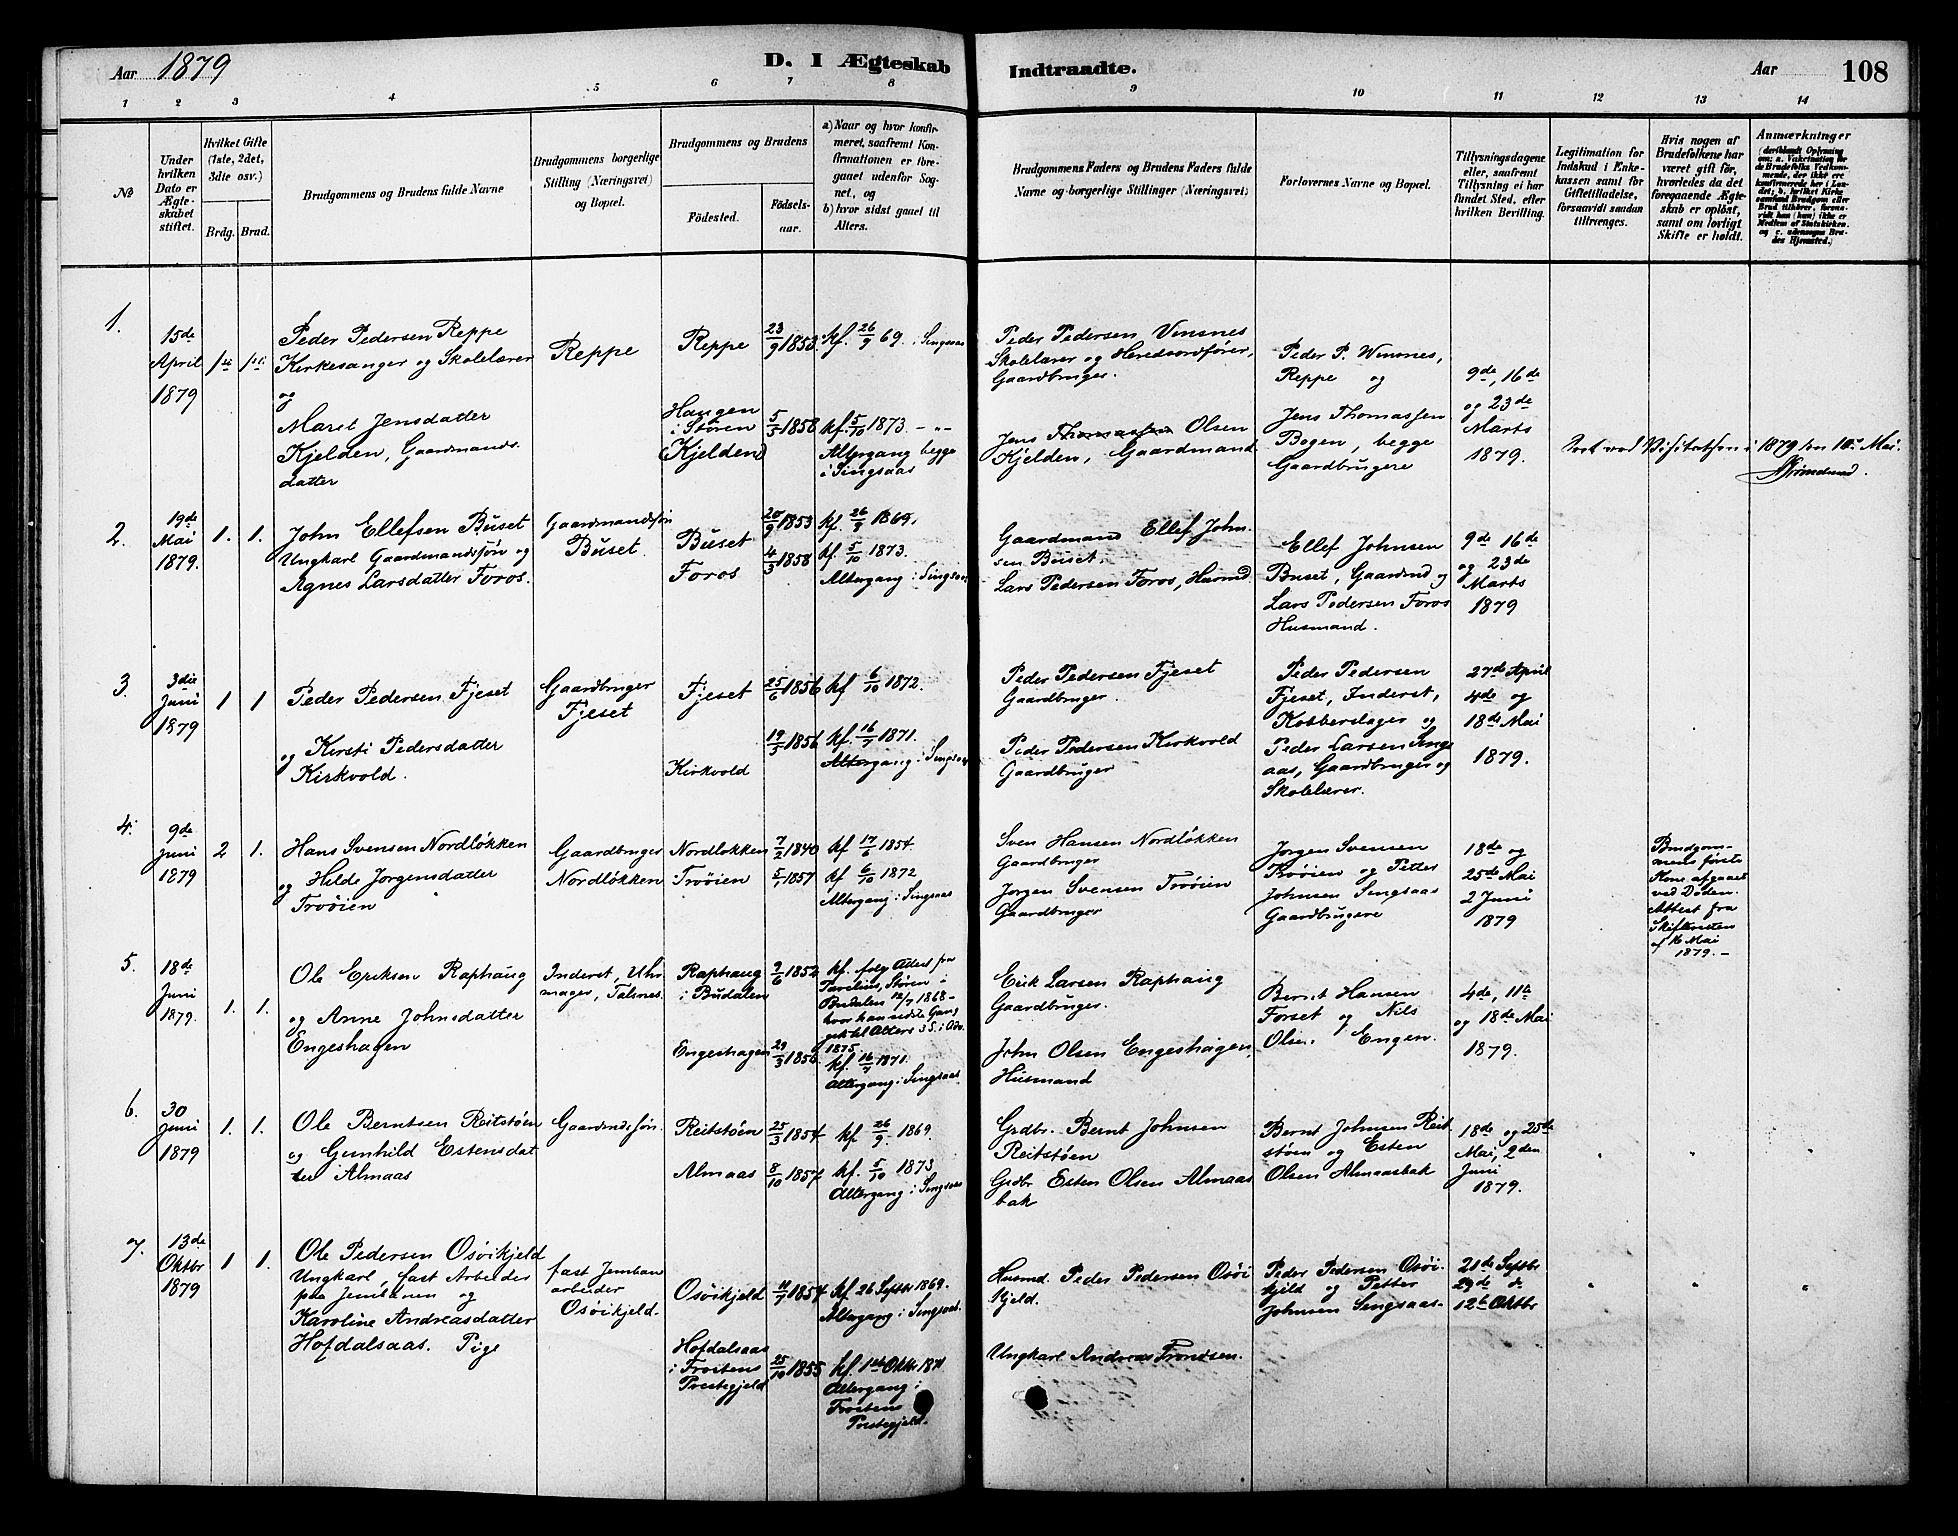 Aar 1879
D. I Ægteskab
Indtraadte.
Aar
108
1 2 3 4 5 6 7 8 9 10 11 12 13 14
No
Under hvilken Dato er Ægteskabet stiftet.
Hvilket Gifte (1ste, 2det, 3die osv.)
Brdg. Brud.
Brudgommens og Brudens fulde Navne
Brudgommens borgerlige Stilling (Næringsvei) og Bopæl.
Brudgommens og Brudens
Födested.
Födselsaar.
a) Naar og hvor konfirmeret, saafremt Konfirmationen er foregaaet udenfor Sognet, og
b) hvor sidst gaaet til Alters.
Brudgommens Faders og Brudens Faders fulde Navne og borgerlige Stillinger (Næringsvei)
Forlovernes Navne og Bopæl.
Tillysningsdagene eller, saafremt Tillysning ei har fundet Sted, efter hvilken Bevilling.
Legitimation for Indskud i Enkekassen samt for Giftetilladelse, forsaavidt saadan tiltrænges.
Hvis nogen af Brudefolkene har været gift för, hvorledes da det foregaaende Ægteskab er oplöst, samt om lovligt Skifte er holdt.
Anmærkninger
1.
15de April 1879
1ste 1ste
Peder Pedersen Reppe
Kirkesanger og Skolelærer
og
Maret Jensdatter
Kjelden, Gaardmands-
datter
Reppe
Reppe
23/9 1853
kf. 26/9 69. Singsaas
Haugen
i Støren
(Kjelden)
5/5 1858
kf. 5/10 1873. - "-
Altergang begge
i Singsaas
Peder Pedersen Vinsnes
Skolelærer og Heredsordfører,
Gaardbruger.
Jens Thomassen Olsen
Kjelden, Gaardmand
Peder P. Winsnes,
Reppe og
Jens Thomassen
Bogen, begge
Gaardbrugere
9de, 16de
og 23de
Marts
1879.
ved Visitatsen i 1879 den 10de Mai.
2.
19de Mai 1879.
1. 1.
John Ellefsen Buset
Ungkarl Gaardmandsføn og
Agnes Larsdatter Foros.
Gaardmandsføn
Buset.
Buset
Foros
20/9 1853
4/3 1858
kf. 26/9 1869.
kf. 5/10 1873.
Altergang i Singsaas
Gaardmand Ellef John-
sen Buset.
Lars Pedersen Foros, Husmd.
Ellef Johnsen
Buset, Gaardmd og
Lars Pedersen Foros
Husmand.
9de 16de
og 23de
Marts
1879
3.
3die Juni 1879
1 1
Peder Pedersen Fjeset
og Kirsti Pedersdatter
Kirkvold.
Gaardbruger
Fjeset
Fjeset
Kirkvold
25/6 1856
19/3 1856
kf 6/10 1872.
kf. 16/7 1871.
Altergang i Singsaas
Peder Pedersen Fjeset
Gaardbruger.
Peder Pedersen Kirkvold
Gaardbruger
Peder Pedersen
Fjeset, Inderst,
Kobberslager og
Peder Larsen Sings
aas, Gaardbruger og
Skolelærer.
27de April
4de og
18de Mai
1879.
4.
9de Juni 1879
2 1.
Hans Svensen Nordløkken
og Hilde Jorgensdatter
Trøøien
Gaardbruger
Nordløkken
Nordløkken
Trøøien
7/2 1840
5/1 1857
kf 17/6 1854.
kf 6/10 1872
Altergang i Singsaas
Sven Hansen Nordløkken
Gaardbruger
Jorgen Svensen Trøøien
Gaardbruger
Jorgen Svensen
Trøøien og Petter
Johnsen Singsaas
Gaardbrugere
18de og
25de Mai
2 Juni
1879
Brudgom-
mens første
Kone afgaaet
ved Døden.
Attest fra
Skifteretten
af 16 Mai
1879. -
5.
18de Juni 1879.
1. 1.
Ole Eriksen Raphaug
og Anne Johnsdatter
Engeshagen
Inderst, Uhr-
mager, Talsnes.
Raphaug
i Budalen
Engeshagen
29/3 1856
kf. følg Attest fra
Støren i
Budalen 12/7 1868 -
hvor han sidste Gang
gik til Alters 3 S. i Adv.
1875
kf. 16/7 1871.
Altergang i Singsaas.
Erik Larsen Raphaug
Gaardbruger.
John Olsen Engeshagen,
Husmand
Bernt Hansen
Forset og Nils
Olsen Engen.
4de, 11te
og 18de Mai
1879.
6.
30 Juni 1879
1. 1.
Ole Berntsen Reitstøen
og Gunhild Estensdat
ter Almaas
Gaardmdsføn.
Reitstøen
Almaas
25/3 1854
8/10 1857
kf. 26/9. 1869.
kf. 5/10 1873
Altergang i Singsaas
Grdbr. Bernt Johnsen
Reitstøen
Grdbr Esten Olsen Almaas
bak
Bernt Johnsen Reit
støen og Esten
Olsen Almaasbak
18de og 25de
Mai, 2den
Juni
1879.
7.
13de Oktbr 1879
1 1.
Ole Pedersen Osøikjeld
Ungkarl, fast Arbeider
paa Jernbanen og
Karoline Andreasdatter
Hofdalsaas. Pige
fast Jernban
arbeider
Osøikjeld.
Osøikjeld
Hofdalsaas
i Frostens
Prestegjeld
1854
25/10 1855
kf. 26 Septbr 1869.
Altergang i Singsaas.
kf. 1ste Oktbr 1871
Altergang i
Frostens
Prestegjeld.
Husmd. Peder Pedersen Osøi
kjeld.
Ungkarl Andreas Trondsen.
Peder Pedersen Osøi-
kjeld og Petter
Johnsen Singsaas.
21de Septbr
29de &
12te Oktbr